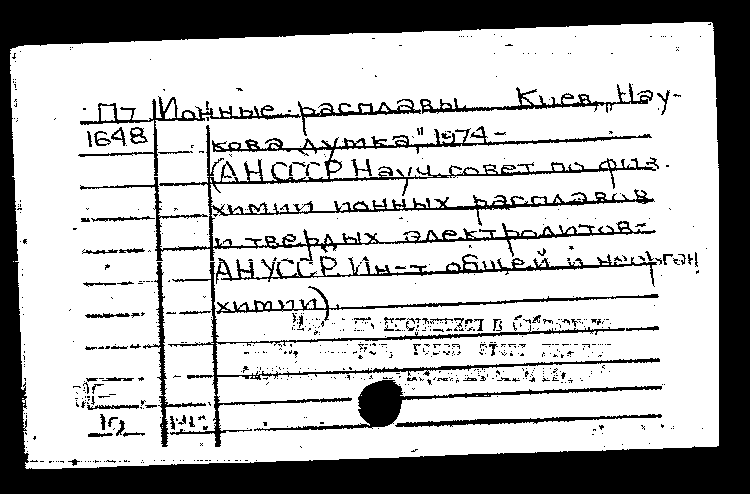 Пт Ионные расплавы. Киев, "Нау-
1648 кова думка," 1974-
(АН СССР Науч. совет по физ.
химии ионных расплавов
и твердых электролитов-
АН УССР Ин-т общей и неорган
химии).
в библиотеке